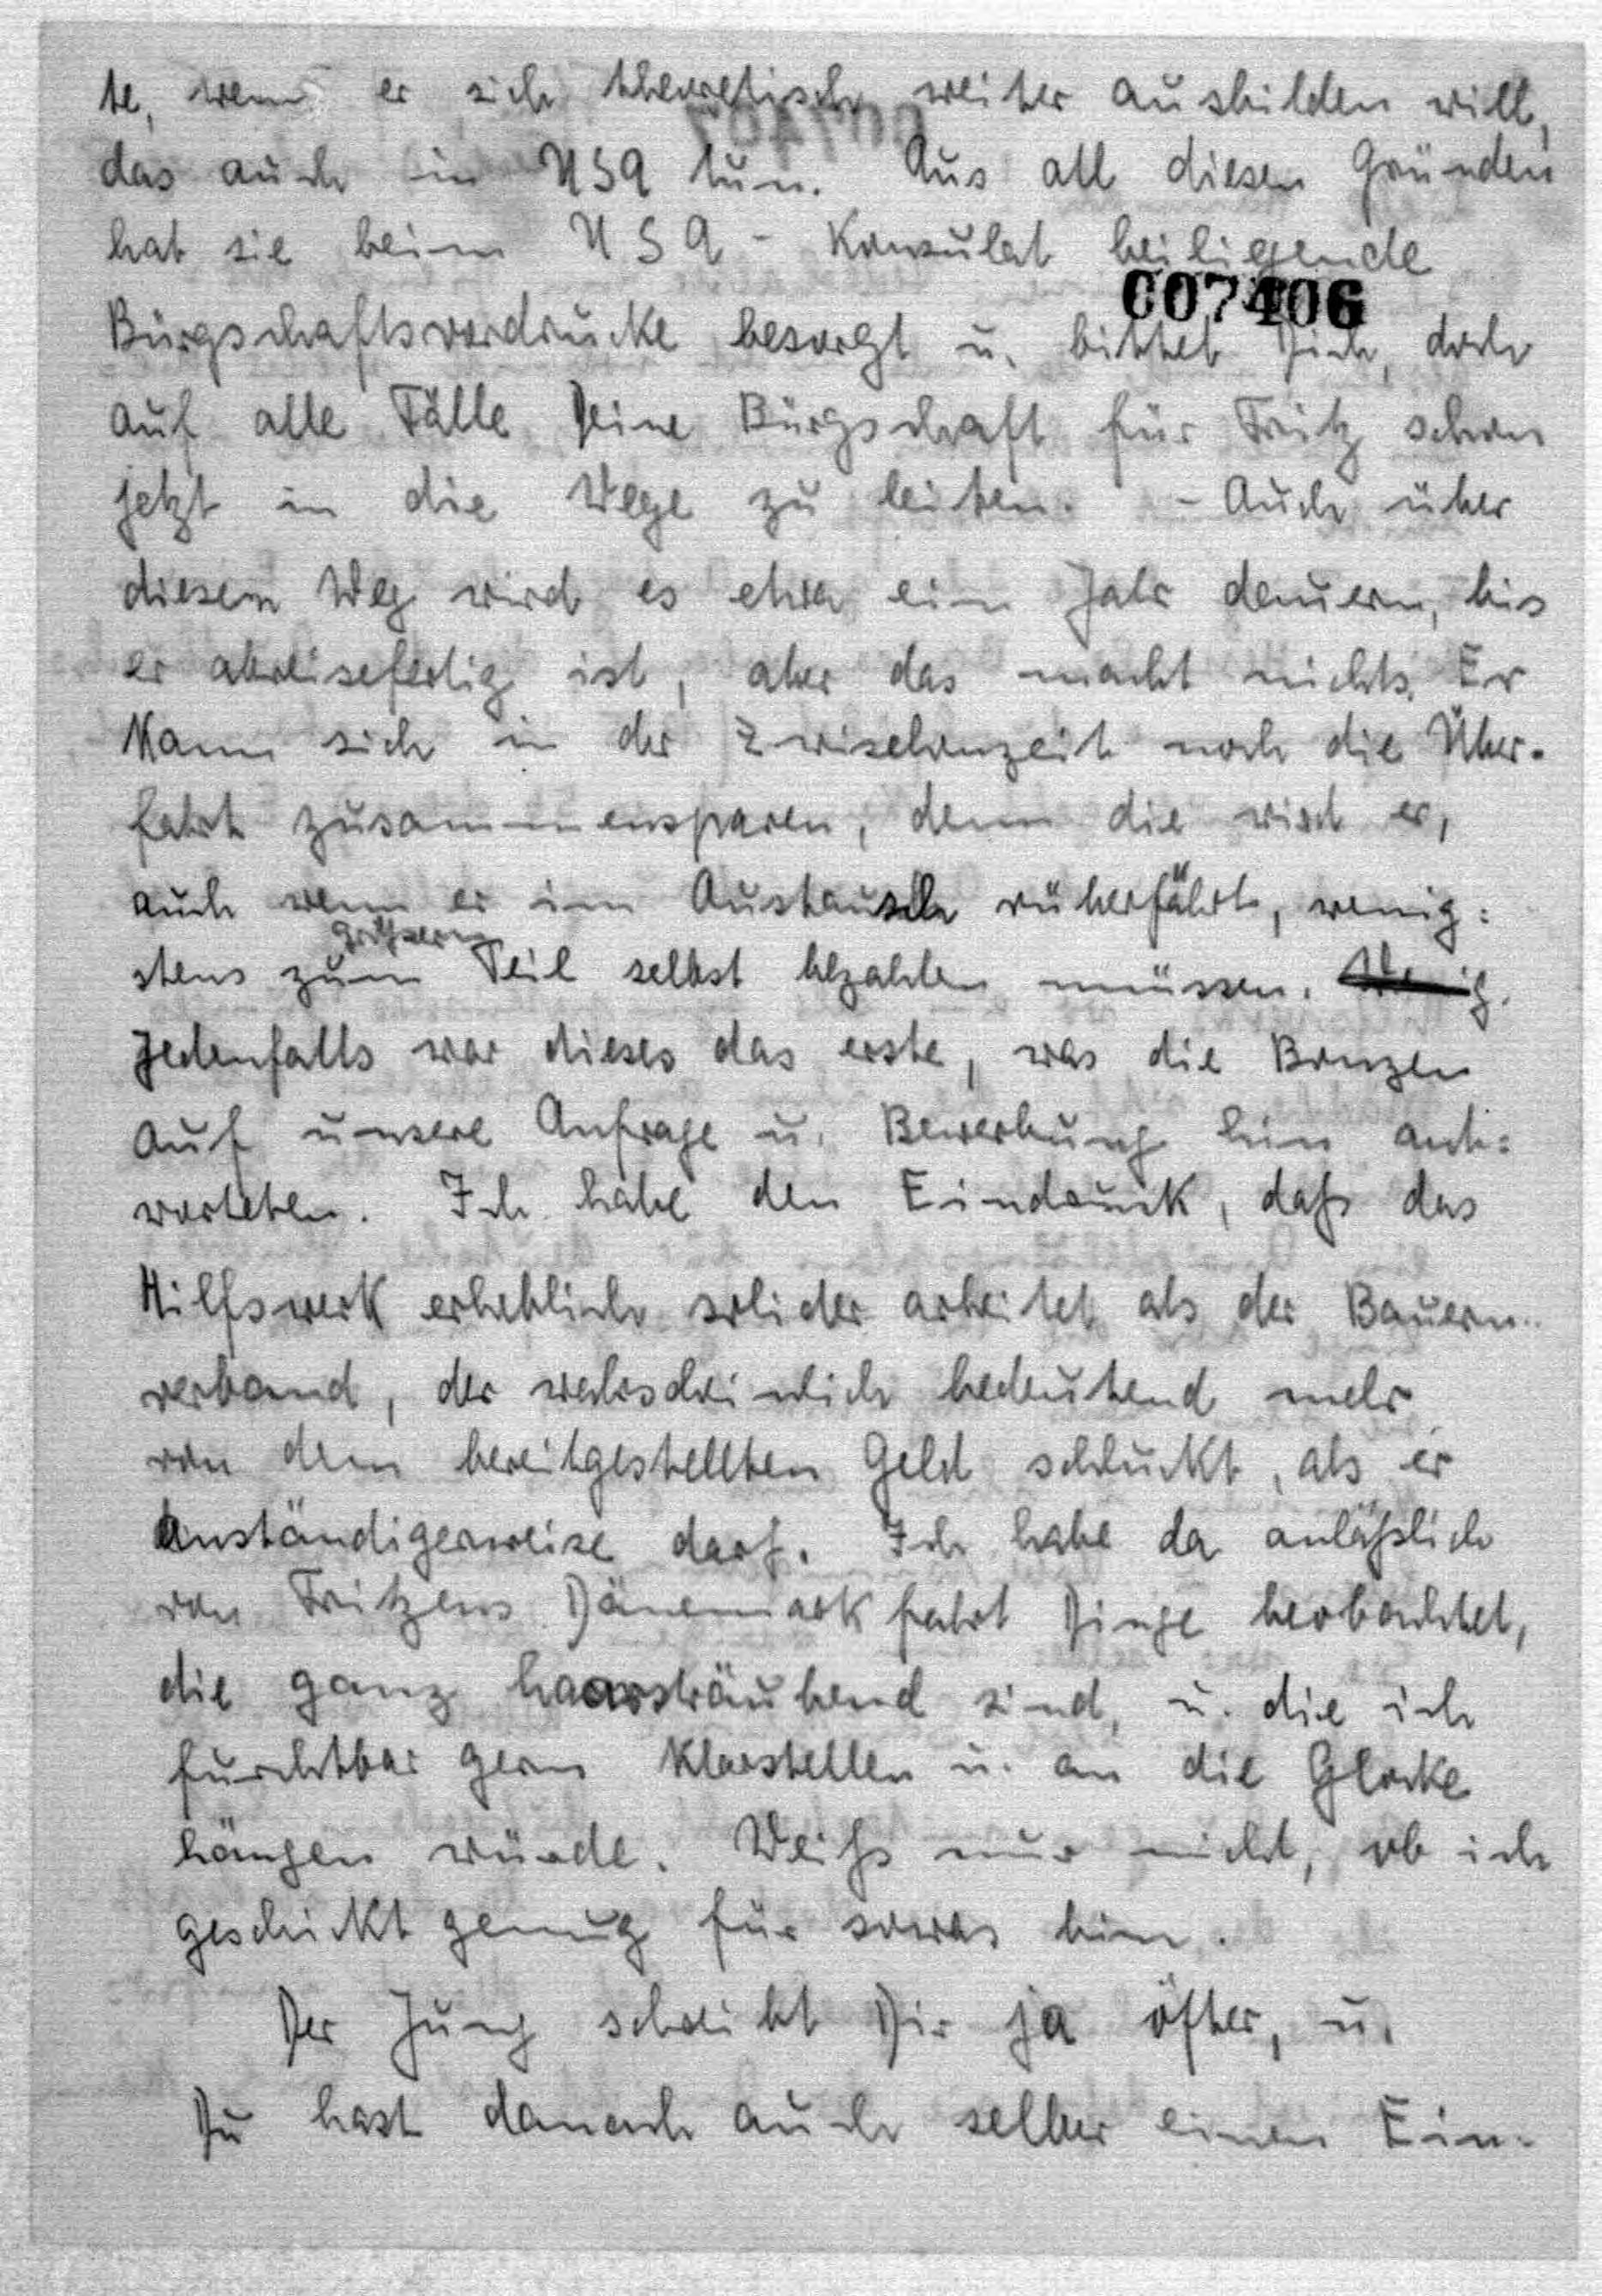 te, wenn er sich theoretisch weiter ausbilden will,
das auch in USA tun. Aus all diesen Gründen
hat sie beim USA - Konsulat beiliegende
007406
Bürgschaftsvordrucke besorgt u. bittet Dich, doch
auf alle Fälle Deine Bürgschaft für Fritz schon
jetzt in die Wege zu leiten. - Auch über
diesem Weg wird es etwa ein Jahr dauern, bis
er abreisefertig ist, aber das macht nichts. Er
kann sich in der Zwischenzeit noch die Über-
fahrt zusammensparen, denn die wird er,
auch wenn er im Austausch rüberfährt, wenig=
größern
stens zum Teil selbst bezahlen müssen.
Jedenfalls war dieses das erste, was die Bonzen
auf unsere Anfrage u. Bewerbung hin ant=
worteten. Ich habe den Eindruck, daß das
Hilfswerk erheblich solider arbeitet als der Bauern-
verband, der wahrscheinlich bedeutend mehr
von dem bereitgestellten Geld schluckt, als er
anständigerweise darf. Ich habe da anläßlich
von Fritzens Dänemarkfahrt Dinge beobachtet,
die ganz haarsträubend sind, u. die ich
furchtbar gern klarstellen u. an die Glocke
hängen würde. Weiß nur nicht, ob ich
geschickt genug für sowas bin.
Der Jung schreibt Dir ja öfter, u.
Du hast danach auch selber einen Ein-